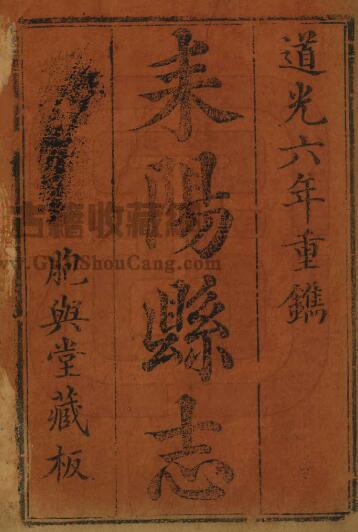 道光六年重鐫
耒陽縣志
胞與堂藏板
古籍收藏
www.GujiShouCang.com